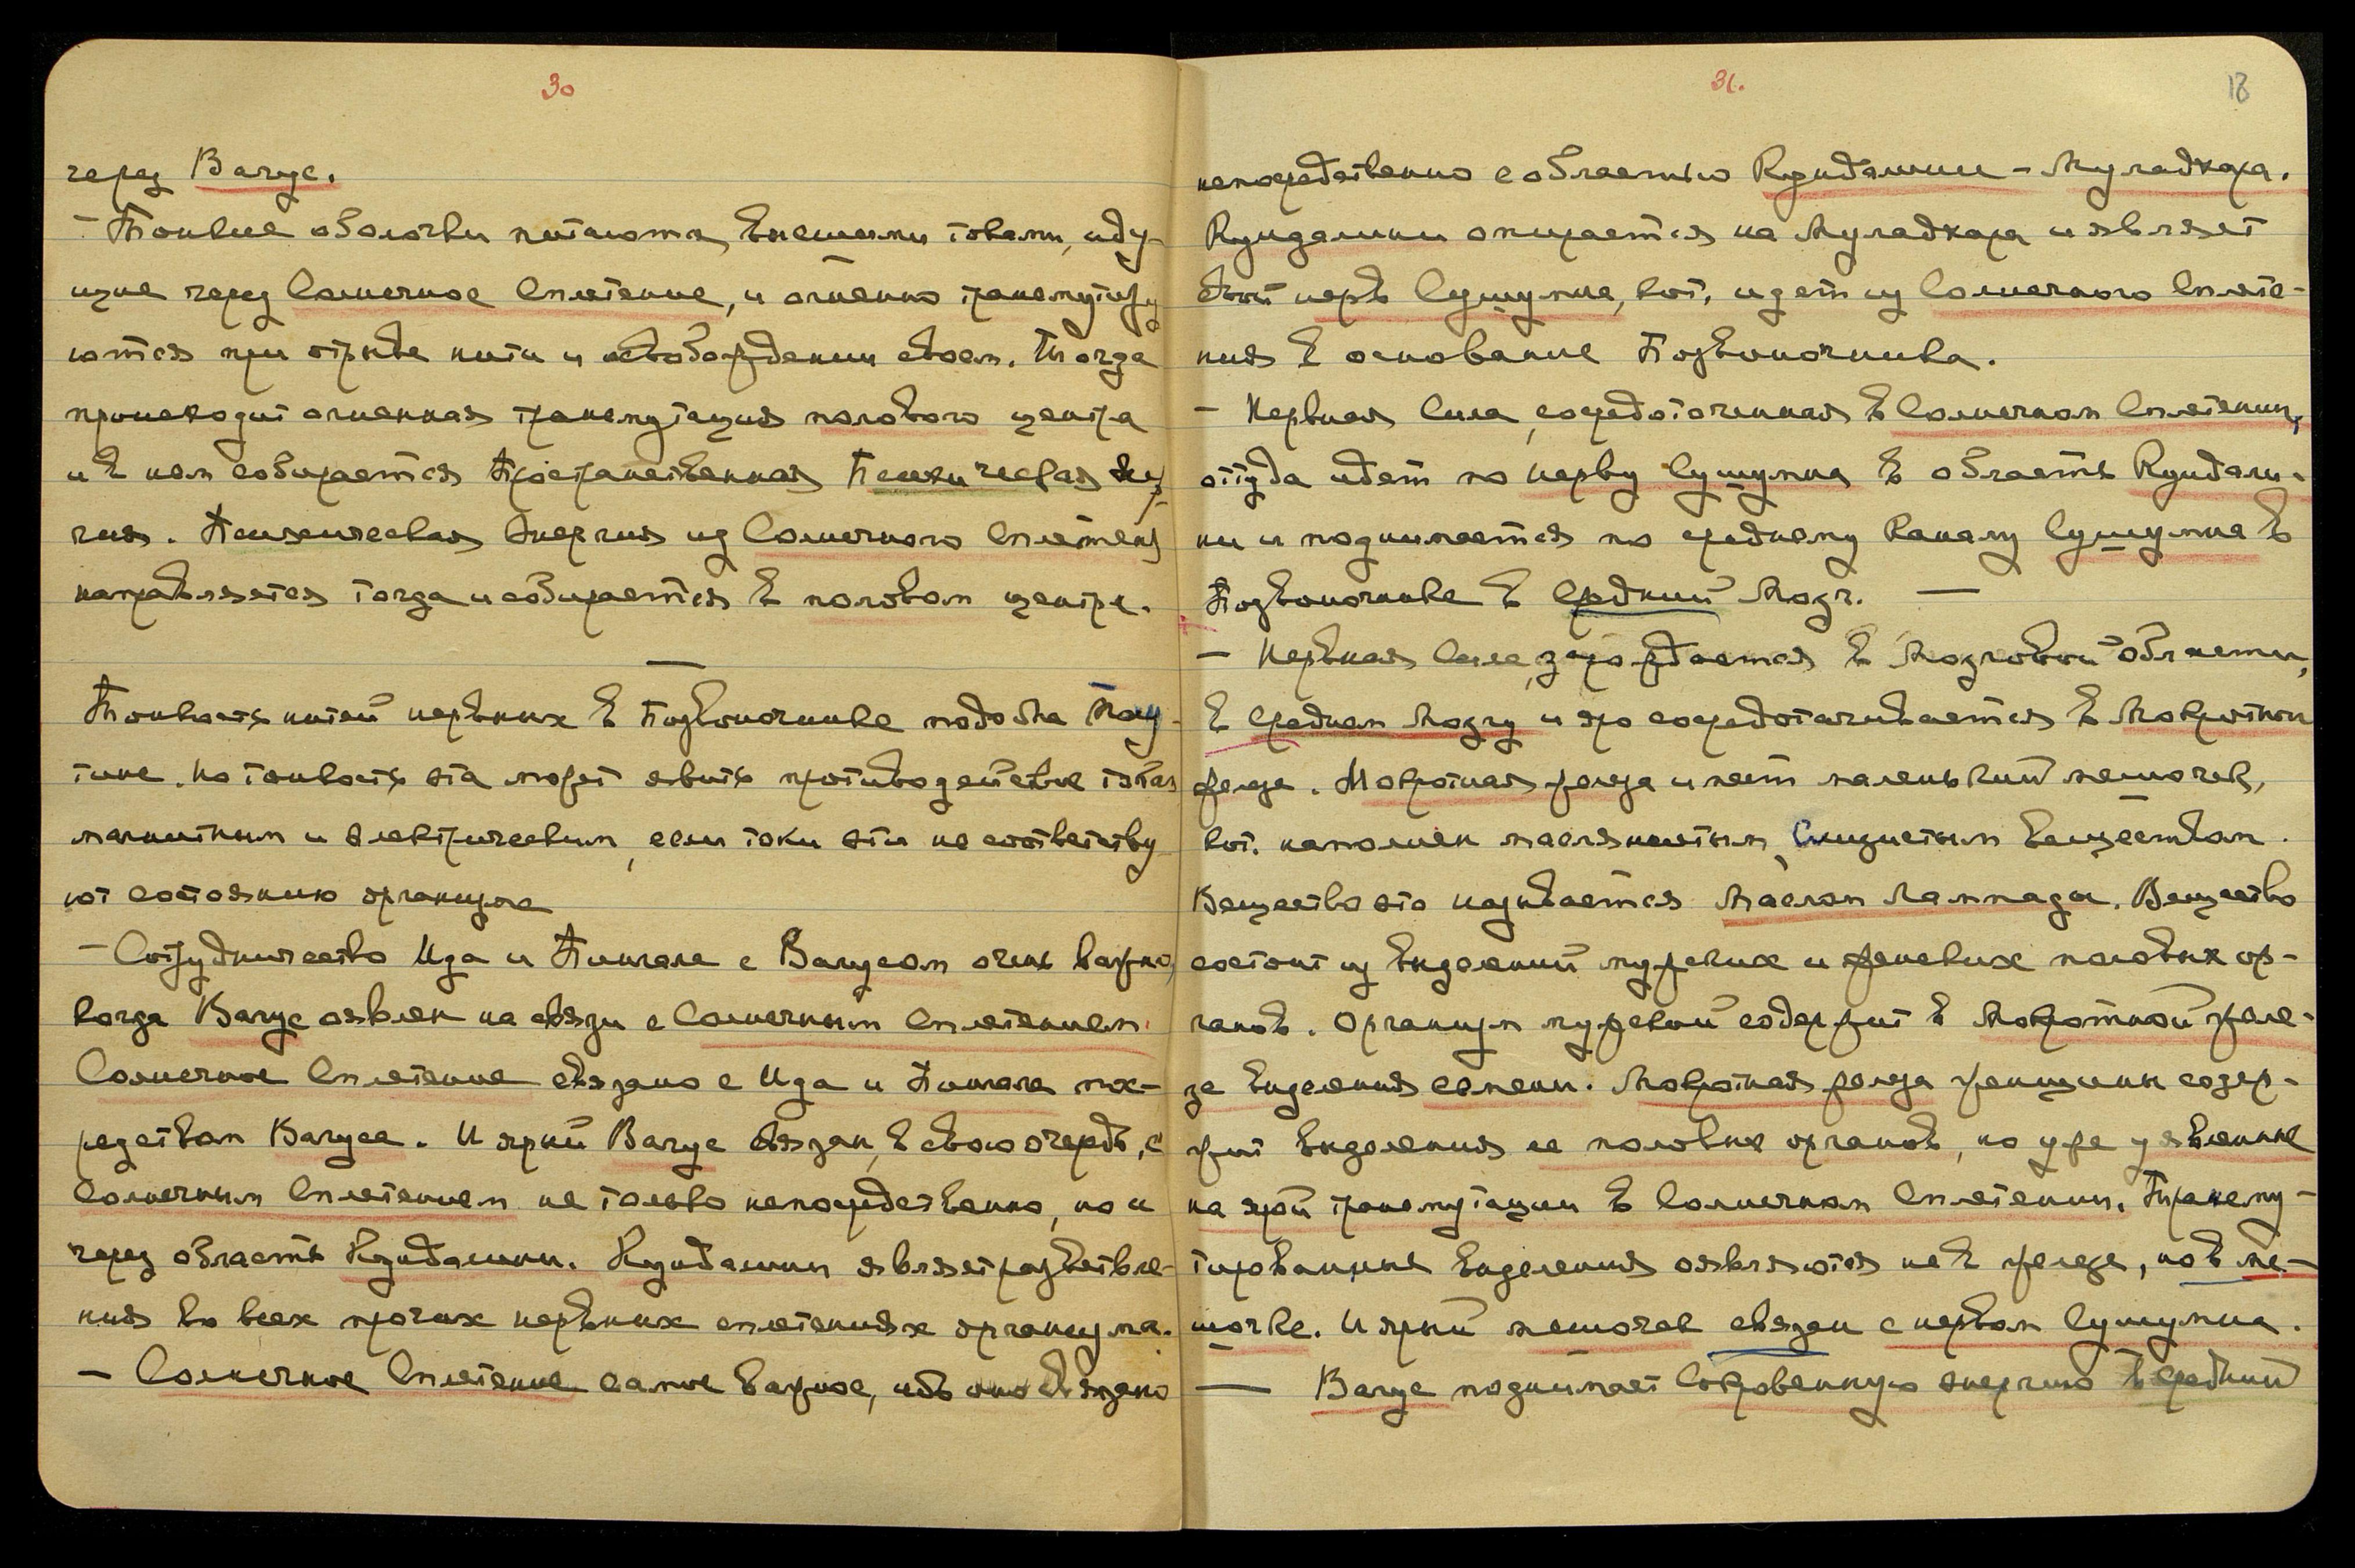 30
через Вагус.
– Тонкие оболочки питаются внешними токами, иду-
щие через Солнечное Сплетение, и огненно трансмутиру
ются при отрыве нити и освобождении своем. Тогда
происходит огненная трансмутация полового центра
и в нем собирается Пространственная Психическая Энер
гия. Психическая Энергия из Солнечного Сплетения
направляется тогда и собирается в половом центре.
—
Тонкость нитей нервных в Позвоночнике подобна Пау-
тине. Но тонкость эта может явить противодействие токам
магнитным и электрическим, если токи эти не соответству
ют состоянию организма
– Сотрудничество Ида и Пингала с Вагусом очень важно,
когда Вагус оявлен на связи с Солнечным Сплетением.
Солнечное Сплетение связано с Ида и Пингала пос-
редством Вагуса. И ярый Вагус связан, в свою очередь, с
Солнечным Сплетением не только непосредственно, но и
через область Кундалини. Кундалини являет разветвле-
ния во всех прочих нервных сплетениях организма.
– Солнечное Сплетение самое важное, ибо оно связано
31. 18
непосредственно с областью Кундалини – Муладхара.
Кундалини опирается на Муладхара и являет
свой нерв Сушумна, кот. идет из Солнечного Сплете-
ния в основание Позвоночника.
– Нервная Сила, сосредоточенная в Солнечном Сплетении,
оттуда идет по нерву Сушумна в область Кундали-
ни и поднимается по среднему Каналу Сушумна в
Позвоночнике в Средний Мозг. —
– Нервная Сила, зарождается в Мозговой области,
в Среднем Мозгу и яро сосредотачивается в Мокротной
железе. Мокротная железа имеет маленький мешочек,
кот. наполнен маслянистым, слизистым веществом.
Вещество это называется Маслом Лампады. Вещество
состоит из выделений мужских и женских половых ор-
ганов. Организм мужской содержит в Мокротной желе-
зе выделения семени. Мокротная железа женщины содер-
жит выделения ее половых органов, но уже уявленные
на ярой трансмутации в Солнечном Сплетении. Трансму-
тированные выделения оявляются не в железе, но в ме-
шочке. И ярый мешочек связан с нервом Сушумна.
— Вагус поднимает Сокровенную энергию в Средний